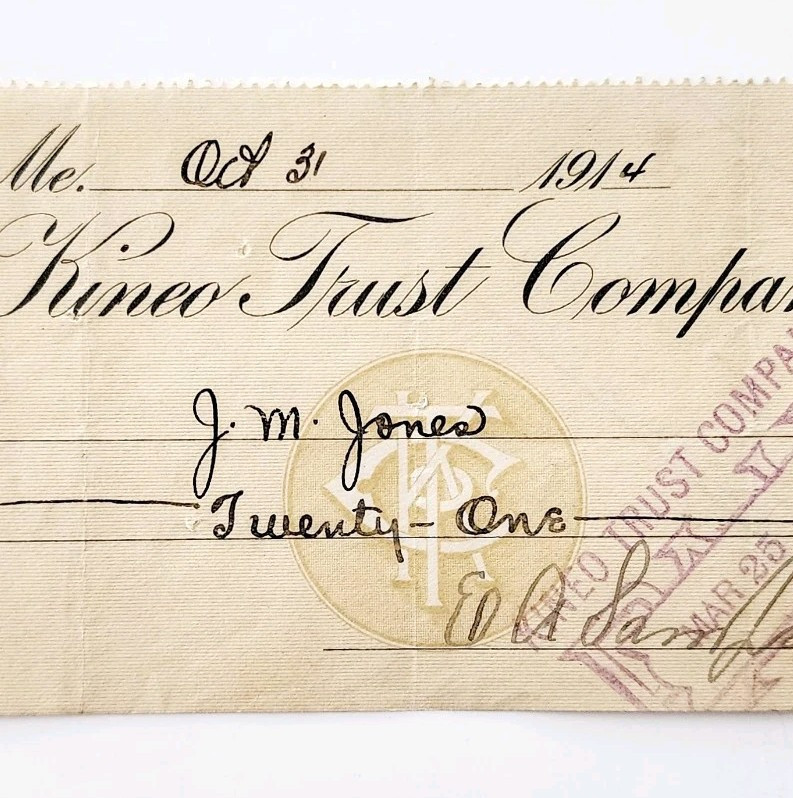 Me. Oct 31 1914
Kineo Trust Compan
J. M. Jones
Twenty-One
KINEO TRUST COMPA
PAID
MAR 25